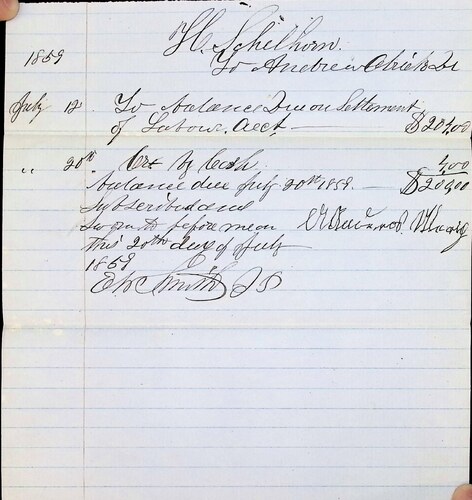 H. Schelhorn.
1859 To Andrew Dr
July 12 To balance Due on Settlement
of Labour. Acct. $204,00
" 20th Cr By Cash 4,00
balance due July 20th 1859. $200,00
Subscribed and
Sworn to before me
this 20th day of July
1859
Smith J P